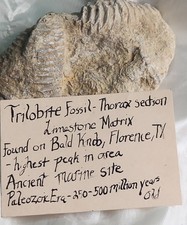 Trilobite Fossil - Thorax section
Limestone Matrix
Found on Bald Knob, Florence, TX
- highest peak in area
Ancient Marine site
Paleozoic Era - 250-500 million years
old